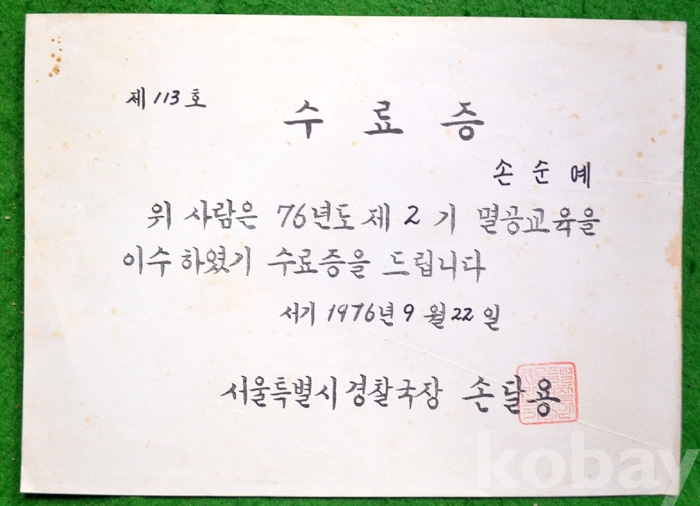 제 113 호
수 료 증
손 순 예
위 사람은 76년도 제 2 기 멸공교육을
이수 하였기 수료증을 드립니다
서기 1976년 9 월 22 일
서울특별시 경찰국장 손달용
kobay